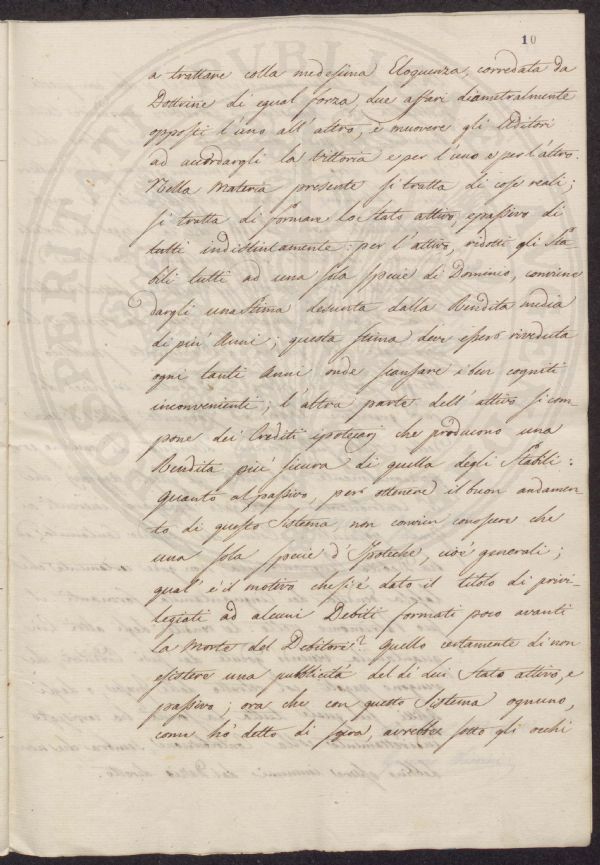 10
a trattare colla medesima Eloquenza, corredata da
Dottrine di egual forza, due affari diametralmente
opposti l'uno all'altro, e muovere gli Uditori
ad accordargli la Vittoria e per l'uno e per l'altro.
Nella materia presente si tratta di cose reali;
si tratta di formare lo stato attivo, e passivo di
tutti indistintamente: per l'attivo, ridotti gli Sta-
bili tutti ad una sola specie di Dominio, conviene
dargli una stima desunta dalla Rendita media
di più Anni; questa stima deve essere riveduta
ogni tanti Anni onde scansare i ben cogniti
inconvenienti; l'altra parte dell'attivo si com-
pone dei Crediti ipotecarj che producono una
Rendita più sicura di quella degli Stabili:
quanto al passivo, per ottenere il buon andamen-
to di questo Sistema, non convien conoscere che
una sola specie d'Ipoteche, cioè generali;
qual'è il motivo che si è dato il titolo di privi-
legiati ad alcuni Debiti formati poco avanti
la morte del Debitore? quello certamente di non
esistere una pubblicità del di lui Stato attivo, e
passivo; ora che con questo Sistema ognuno,
come hò detto di sopra, avrebbe sotto gli occhi